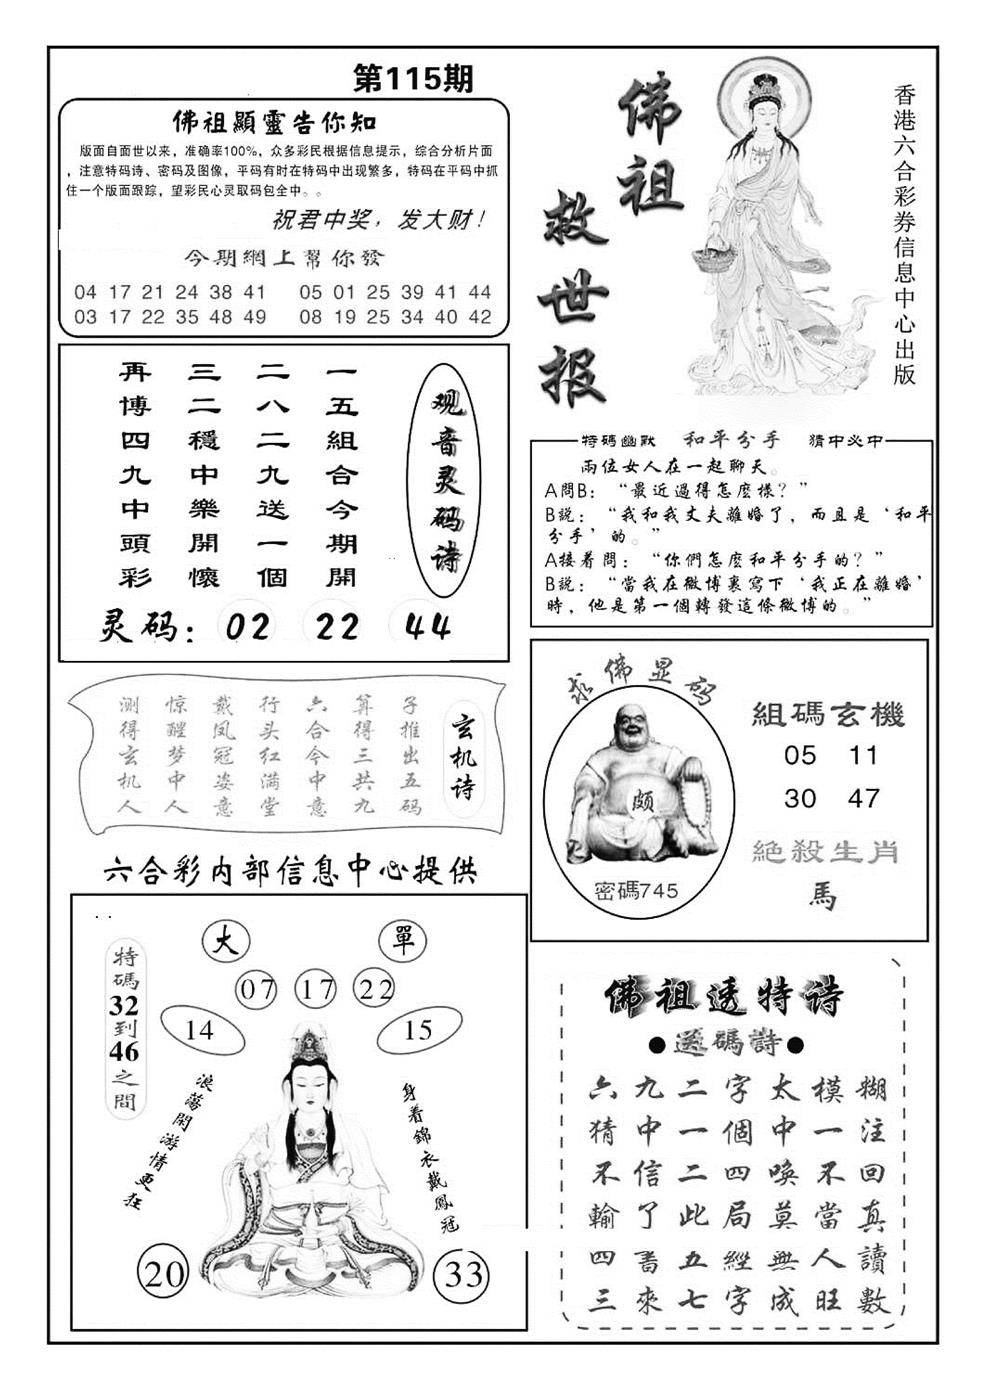 第115期
佛祖顯靈告你知
版面自面世以来，准确率100%，众多彩民根据信息提示，综合分析片面
，注意特码诗、密码及图像，平码有时在特码中出现繁多，特码在平码中抓
住一个版面跟踪，望彩民心灵取码包全中。。
祝君中奖，发大财！
今期網上幫你發
04 17 21 24 38 41 05 01 25 39 41 44
03 17 22 35 48 49 08 19 25 34 40 42
佛祖
救世报
香港六合彩券信息中心出版
观音灵码诗
一五組合今期開
二八二九送一個
三二穩中樂開懷
再博四九中頭彩
灵码：02 22 44
特碼幽默 和平分手 猜中必中
兩位女人在一起聊天。
A問B：“最近過得怎麽樣？”
B説：“我和我丈夫離婚了，而且是‘和平
分手’的。”
A接着問：“你們怎麽和平分手的？”
B説：“當我在微博裹寫下‘我正在離婚’
時，他是第一個轉發這條微博的。”
玄机诗
子推出五码
算得三共九
六合今中意
行头红满堂
戴凤冠姿意
惊醒梦中人
测得玄机人
求佛显码
颇
密碼745
組碼玄機
05 11
30 47
絕殺生肖
馬
六合彩内部信息中心提供
大
單
07 17 22
14
15
特碼32到46之間
浪蕩閑游情更狂
身着錦衣戴鳳冠
20
33
佛祖透特诗
●送碼詩●
六九二字太模糊
猜中一個中一注
不信二四喚不回
輸了此局莫當真
四書五經無人讀
三來七字成旺數